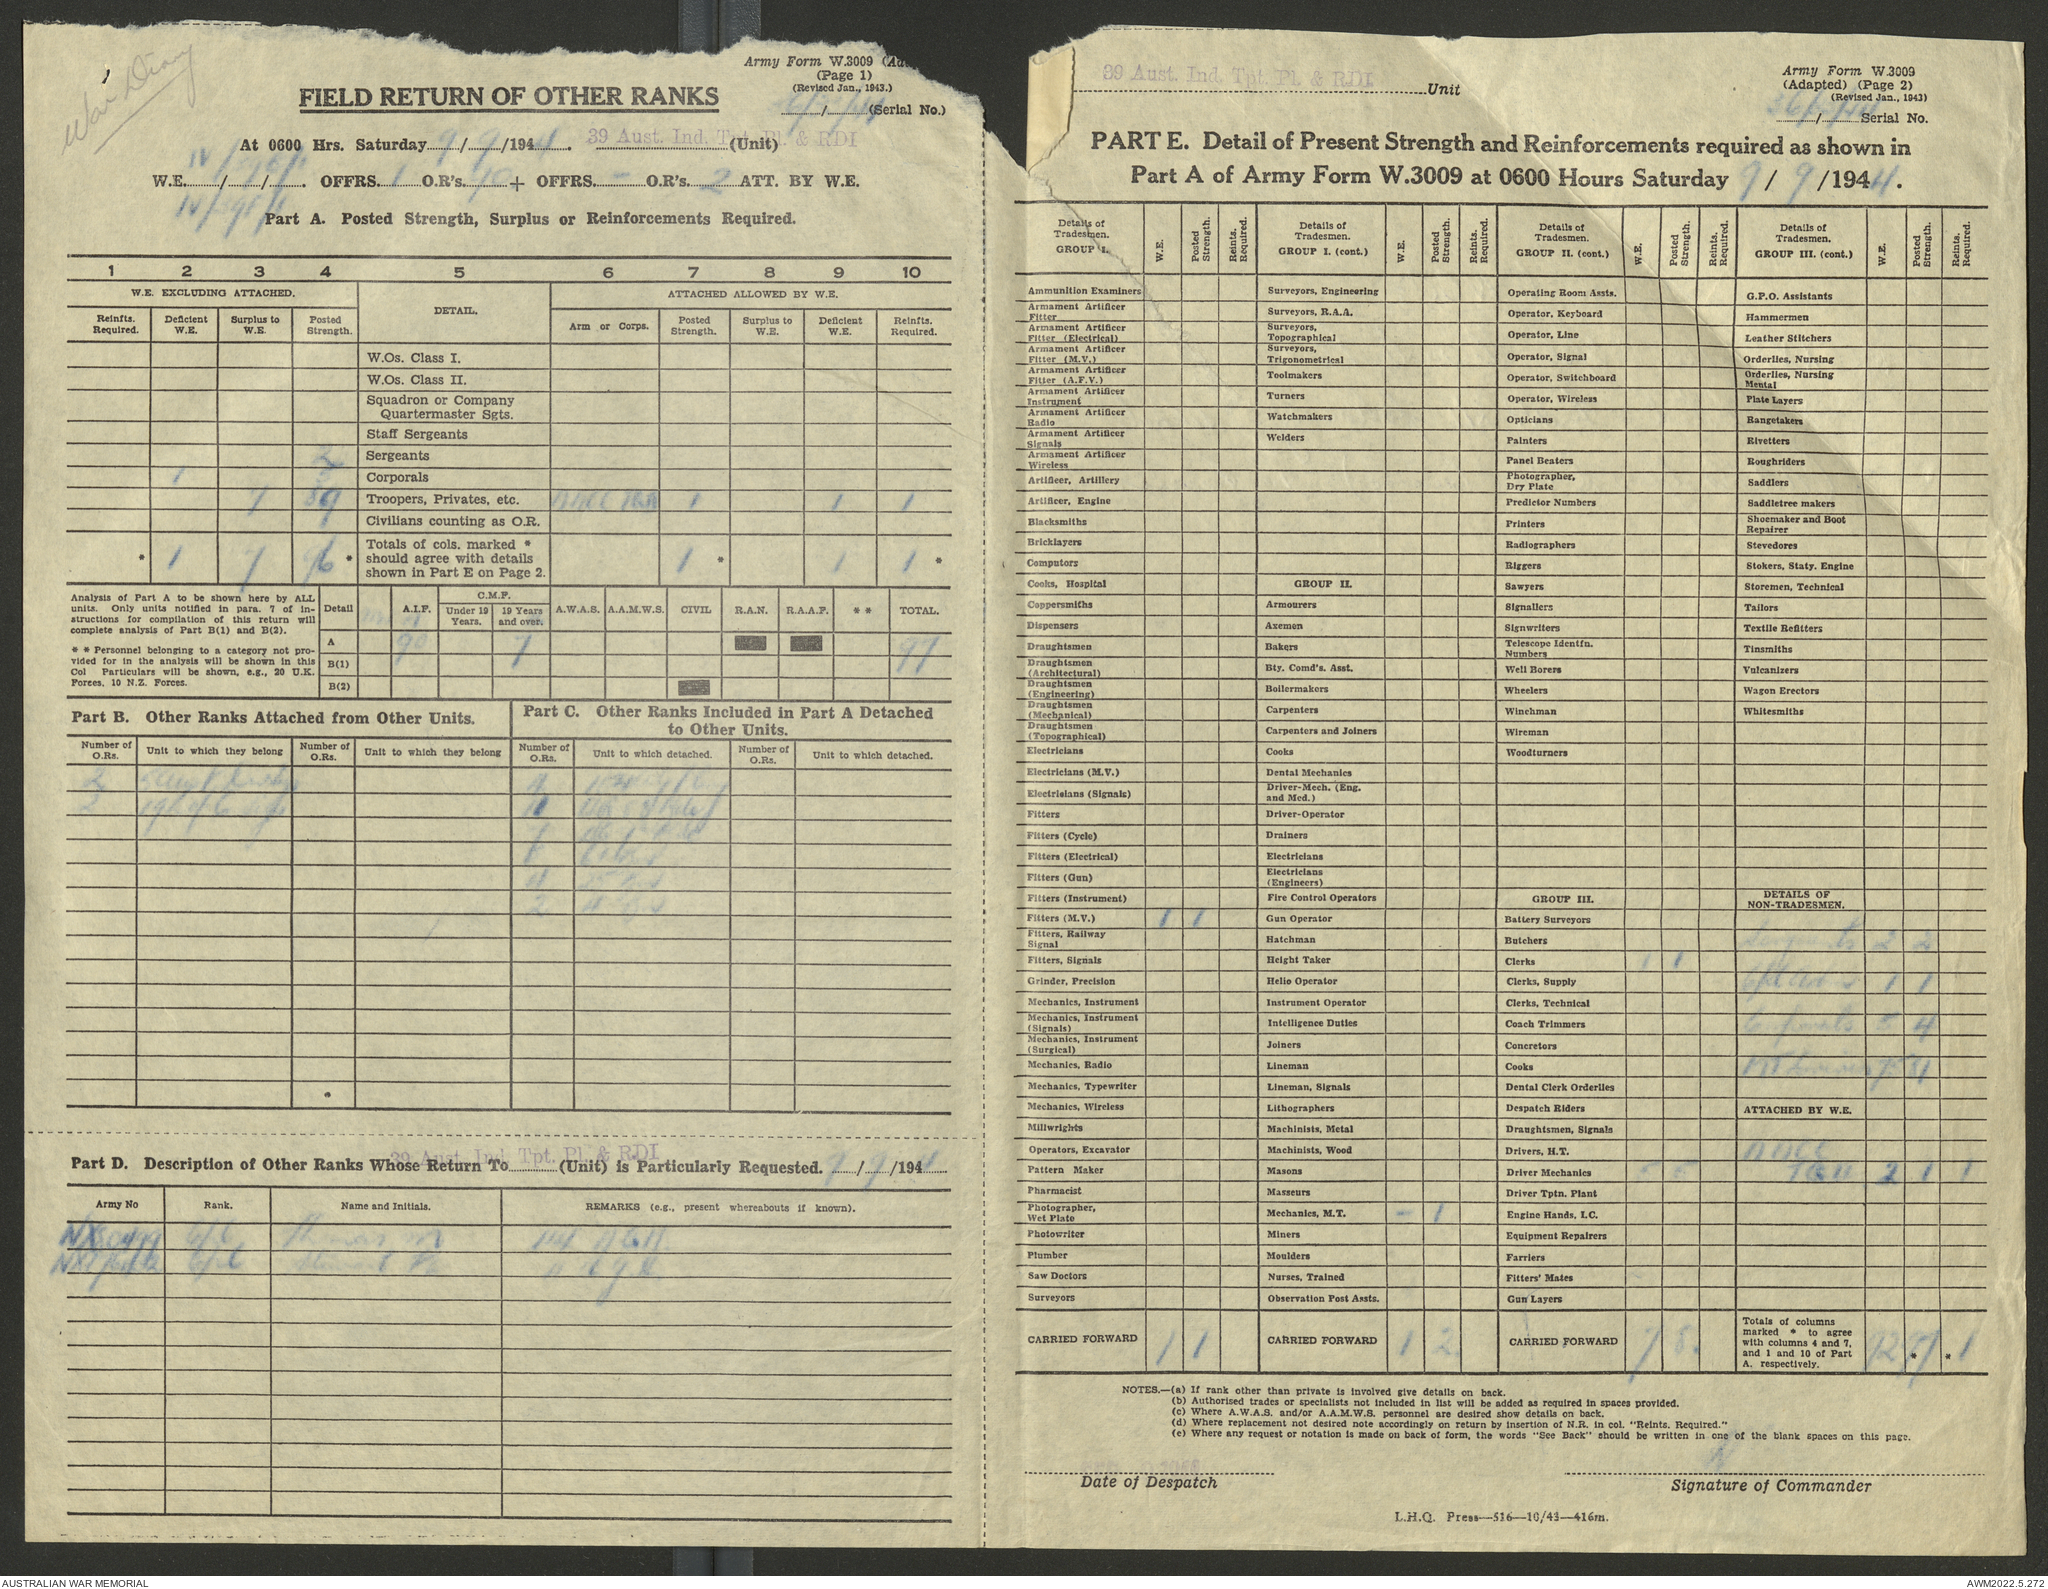 War Diary
Army Form W.3009
(Page 1)
(Revised Jan., 1943.)
/ (Serial No.)
FIELD RETURN OF OTHER RANKS
At 0600 Hrs. Saturday 9/9/1944. 39 Aust. Ind. Tpt. Pl. & RDI (Unit)
W.E. / / . OFFRS. 1 O.R's. 90 + OFFRS. - O.R's. 2 ATT. BY W.E.
Part A. Posted Strength, Surplus or Reinforcements Required.
1 2 3 4 5 6 7 8 9 10
W.E. EXCLUDING ATTACHED. DETAIL. ATTACHED ALLOWED BY W.E.
Reinfts. Required. Deficient W.E. Surplus to W.E. Posted Strength. Arm or Corps. Posted Strength. Surplus to W.E. Deficient W.E. Reinfts. Required.
W.Os. Class I.
W.Os. Class II.
Squadron or Company
Quartermaster Sgts.
Staff Sergeants
2 Sergeants
1 Corporals
7 89 Troopers, Privates, etc. 1 1 1
Civilians counting as O.R.
* 1 7 96 * Totals of cols. marked *
should agree with details
shown in Part E on Page 2. 1 * 1 1 *
Analysis of Part A to be shown here by ALL
units. Only units notified in para. 7 of in-
structions for compilation of this return will
complete analysis of Part B(1) and B(2).
* * Personnel belonging to a category not pro-
vided for in the analysis will be shown in this
Col Particulars will be shown, e.g., 20 U.K.
Forces, 10 N.Z. Forces.
Detail A.I.F. C.M.F. Under 19 Years. 19 Years and over. A.W.A.S. A.A.M.W.S. CIVIL R.A.N. R.A.A.F. * * TOTAL.
A 90 7 97
B(1)
B(2)
Part B. Other Ranks Attached from Other Units.
Part C. Other Ranks Included in Part A Detached
to Other Units.
Number of O.Rs. Unit to which they belong Number of O.Rs. Unit to which they belong Number of O.Rs. Unit to which detached. Number of O.Rs. Unit to which detached.
2
2
2
*
39 Aust. Ind. Tpt. Pl. & RDI
Part D. Description of Other Ranks Whose Return To (Unit) is Particularly Requested. 9/9/1944
Army No Rank. Name and Initials. REMARKS (e.g., present whereabouts if known).
39 Aust. Ind. Tpt. Pl. & RDI Unit
Army Form W.3009
(Adapted) (Page 2)
(Revised Jan., 1943)
/ Serial No.
PART E. Detail of Present Strength and Reinforcements required as shown in
Part A of Army Form W.3009 at 0600 Hours Saturday 9/9/1944.
Details of Tradesmen. GROUP I. W.E. Posted Strength. Reints. Required.
Ammunition Examiners
Armament Artificer Fitter
Armament Artificer Fitter (Electrical)
Armament Artificer Fitter (M.V.)
Armament Artificer Fitter (A.F.V.)
Armament Artificer Instrument
Armament Artificer Radio
Armament Artificer Signals
Armament Artificer Wireless
Artificer, Artillery
Artificer, Engine
Blacksmiths
Bricklayers
Computors
Cooks, Hospital
Coppersmiths
Dispensers
Draughtsmen
Draughtsmen (Architectural)
Draughtsmen (Engineering)
Draughtsmen (Mechanical)
Draughtsmen (Topographical)
Electricians
Electricians (M.V.)
Electricians (Signals)
Fitters
Fitters (Cycle)
Fitters (Electrical)
Fitters (Gun)
Fitters (Instrument)
Fitters (M.V.) 1 1
Fitters, Railway Signal
Fitters, Signals
Grinder, Precision
Mechanics, Instrument
Mechanics, Instrument (Signals)
Mechanics, Instrument (Surgical)
Mechanics, Radio
Mechanics, Typewriter
Mechanics, Wireless
Millwrights
Operators, Excavator
Pattern Maker
Pharmacist
Photographer, Wet Plate
Photowriter
Plumber
Saw Doctors
Surveyors
CARRIED FORWARD 1 1
Details of Tradesmen. GROUP I. (cont.) W.E. Posted Strength. Reints. Required.
Surveyors, Engineering
Surveyors, R.A.A.
Surveyors, Topographical
Surveyors, Trigonometrical
Toolmakers
Turners
Watchmakers
Welders
GROUP II.
Armourers
Axemen
Bakers
Bty. Comd's. Asst.
Boilermakers
Carpenters
Carpenters and Joiners
Cooks
Dental Mechanics
Driver-Mech. (Eng. and Med.)
Driver-Operator
Drainers
Electricians
Electricians (Engineers)
Fire Control Operators
Gun Operator
Hatchman
Height Taker
Helio Operator
Instrument Operator
Intelligence Duties
Joiners
Lineman
Lineman, Signals
Lithographers
Machinists, Metal
Machinists, Wood
Masons
Masseurs
Mechanics, M.T. - 1
Miners
Moulders
Nurses, Trained
Observation Post Assts.
CARRIED FORWARD 1 2
Details of Tradesmen. GROUP II. (cont.) W.E. Posted Strength. Reints. Required.
Operating Room Assts.
Operator, Keyboard
Operator, Line
Operator, Signal
Operator, Switchboard
Operator, Wireless
Opticians
Painters
Panel Beaters
Photographer, Dry Plate
Predictor Numbers
Printers
Radiographers
Riggers
Sawyers
Signallers
Signwriters
Telescope Identfn. Numbers
Well Borers
Wheelers
Winchman
Wireman
Woodturners
GROUP III.
Battery Surveyors
Butchers
Clerks 1 1
Clerks, Supply
Clerks, Technical
Coach Trimmers
Concretors
Cooks
Dental Clerk Orderlies
Despatch Riders
Draughtsmen, Signals
Drivers, H.T.
Driver Mechanics 5 5
Driver Tptn. Plant
Engine Hands, I.C.
Equipment Repairers
Farriers
Fitters' Mates
Gun Layers
CARRIED FORWARD 7 8
Details of Tradesmen. GROUP III. (cont.) W.E. Posted Strength. Reints. Required.
G.P.O. Assistants
Hammermen
Leather Stitchers
Orderlies, Nursing
Orderlies, Nursing Mental
Plate Layers
Rangetakers
Rivetters
Roughriders
Saddlers
Saddletree makers
Shoemaker and Boot Repairer
Stevedores
Stokers, Staty. Engine
Storemen, Technical
Tailors
Textile Refitters
Tinsmiths
Vulcanizers
Wagon Erectors
Whitesmiths
DETAILS OF NON-TRADESMEN.
Sergeants 2 2
1 1
5 4
ATTACHED BY W.E.
AACC
2 1 1
Totals of columns
marked * to agree
with columns 4 and 7,
and 1 and 10 of Part
A, respectively. 92 97 * * 1
NOTES.—(a) If rank other than private is involved give details on back.
(b) Authorised trades or specialists not included in list will be added as required in spaces provided.
(c) Where A.W.A.S. and/or A.A.M.W.S. personnel are desired show details on back.
(d) Where replacement not desired note accordingly on return by insertion of N.R. in col. "Reints. Required."
(e) Where any request or notation is made on back of form, the words "See Back" should be written in one of the blank spaces on this page.
Date of Despatch
Signature of Commander
L.H.Q. Press—516—10/43—416m.
AUSTRALIAN WAR MEMORIAL
AWM2022.5.272